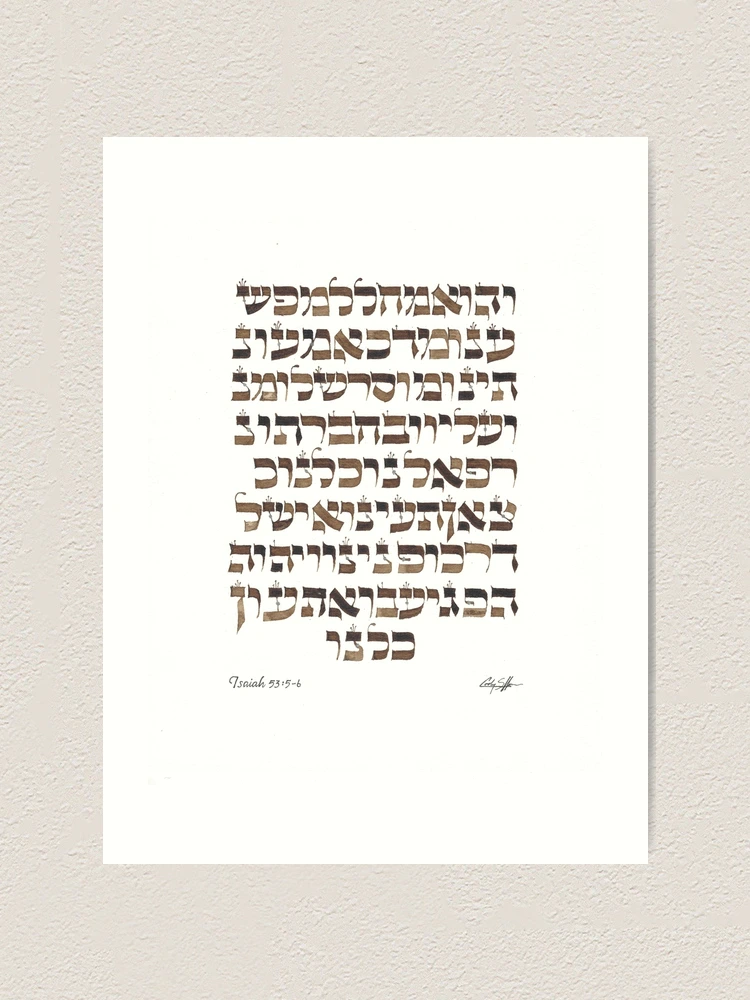 והואמחללמפש
ענומדכאמעונ
תינומוסרשלומנ
ועליוובחברתונ
רפאלנוכלנוכ
צאןתעינואישל
דרכופנינוויהוה
הפגיעבואתעון
כלנו
Isaiah 53:5-6